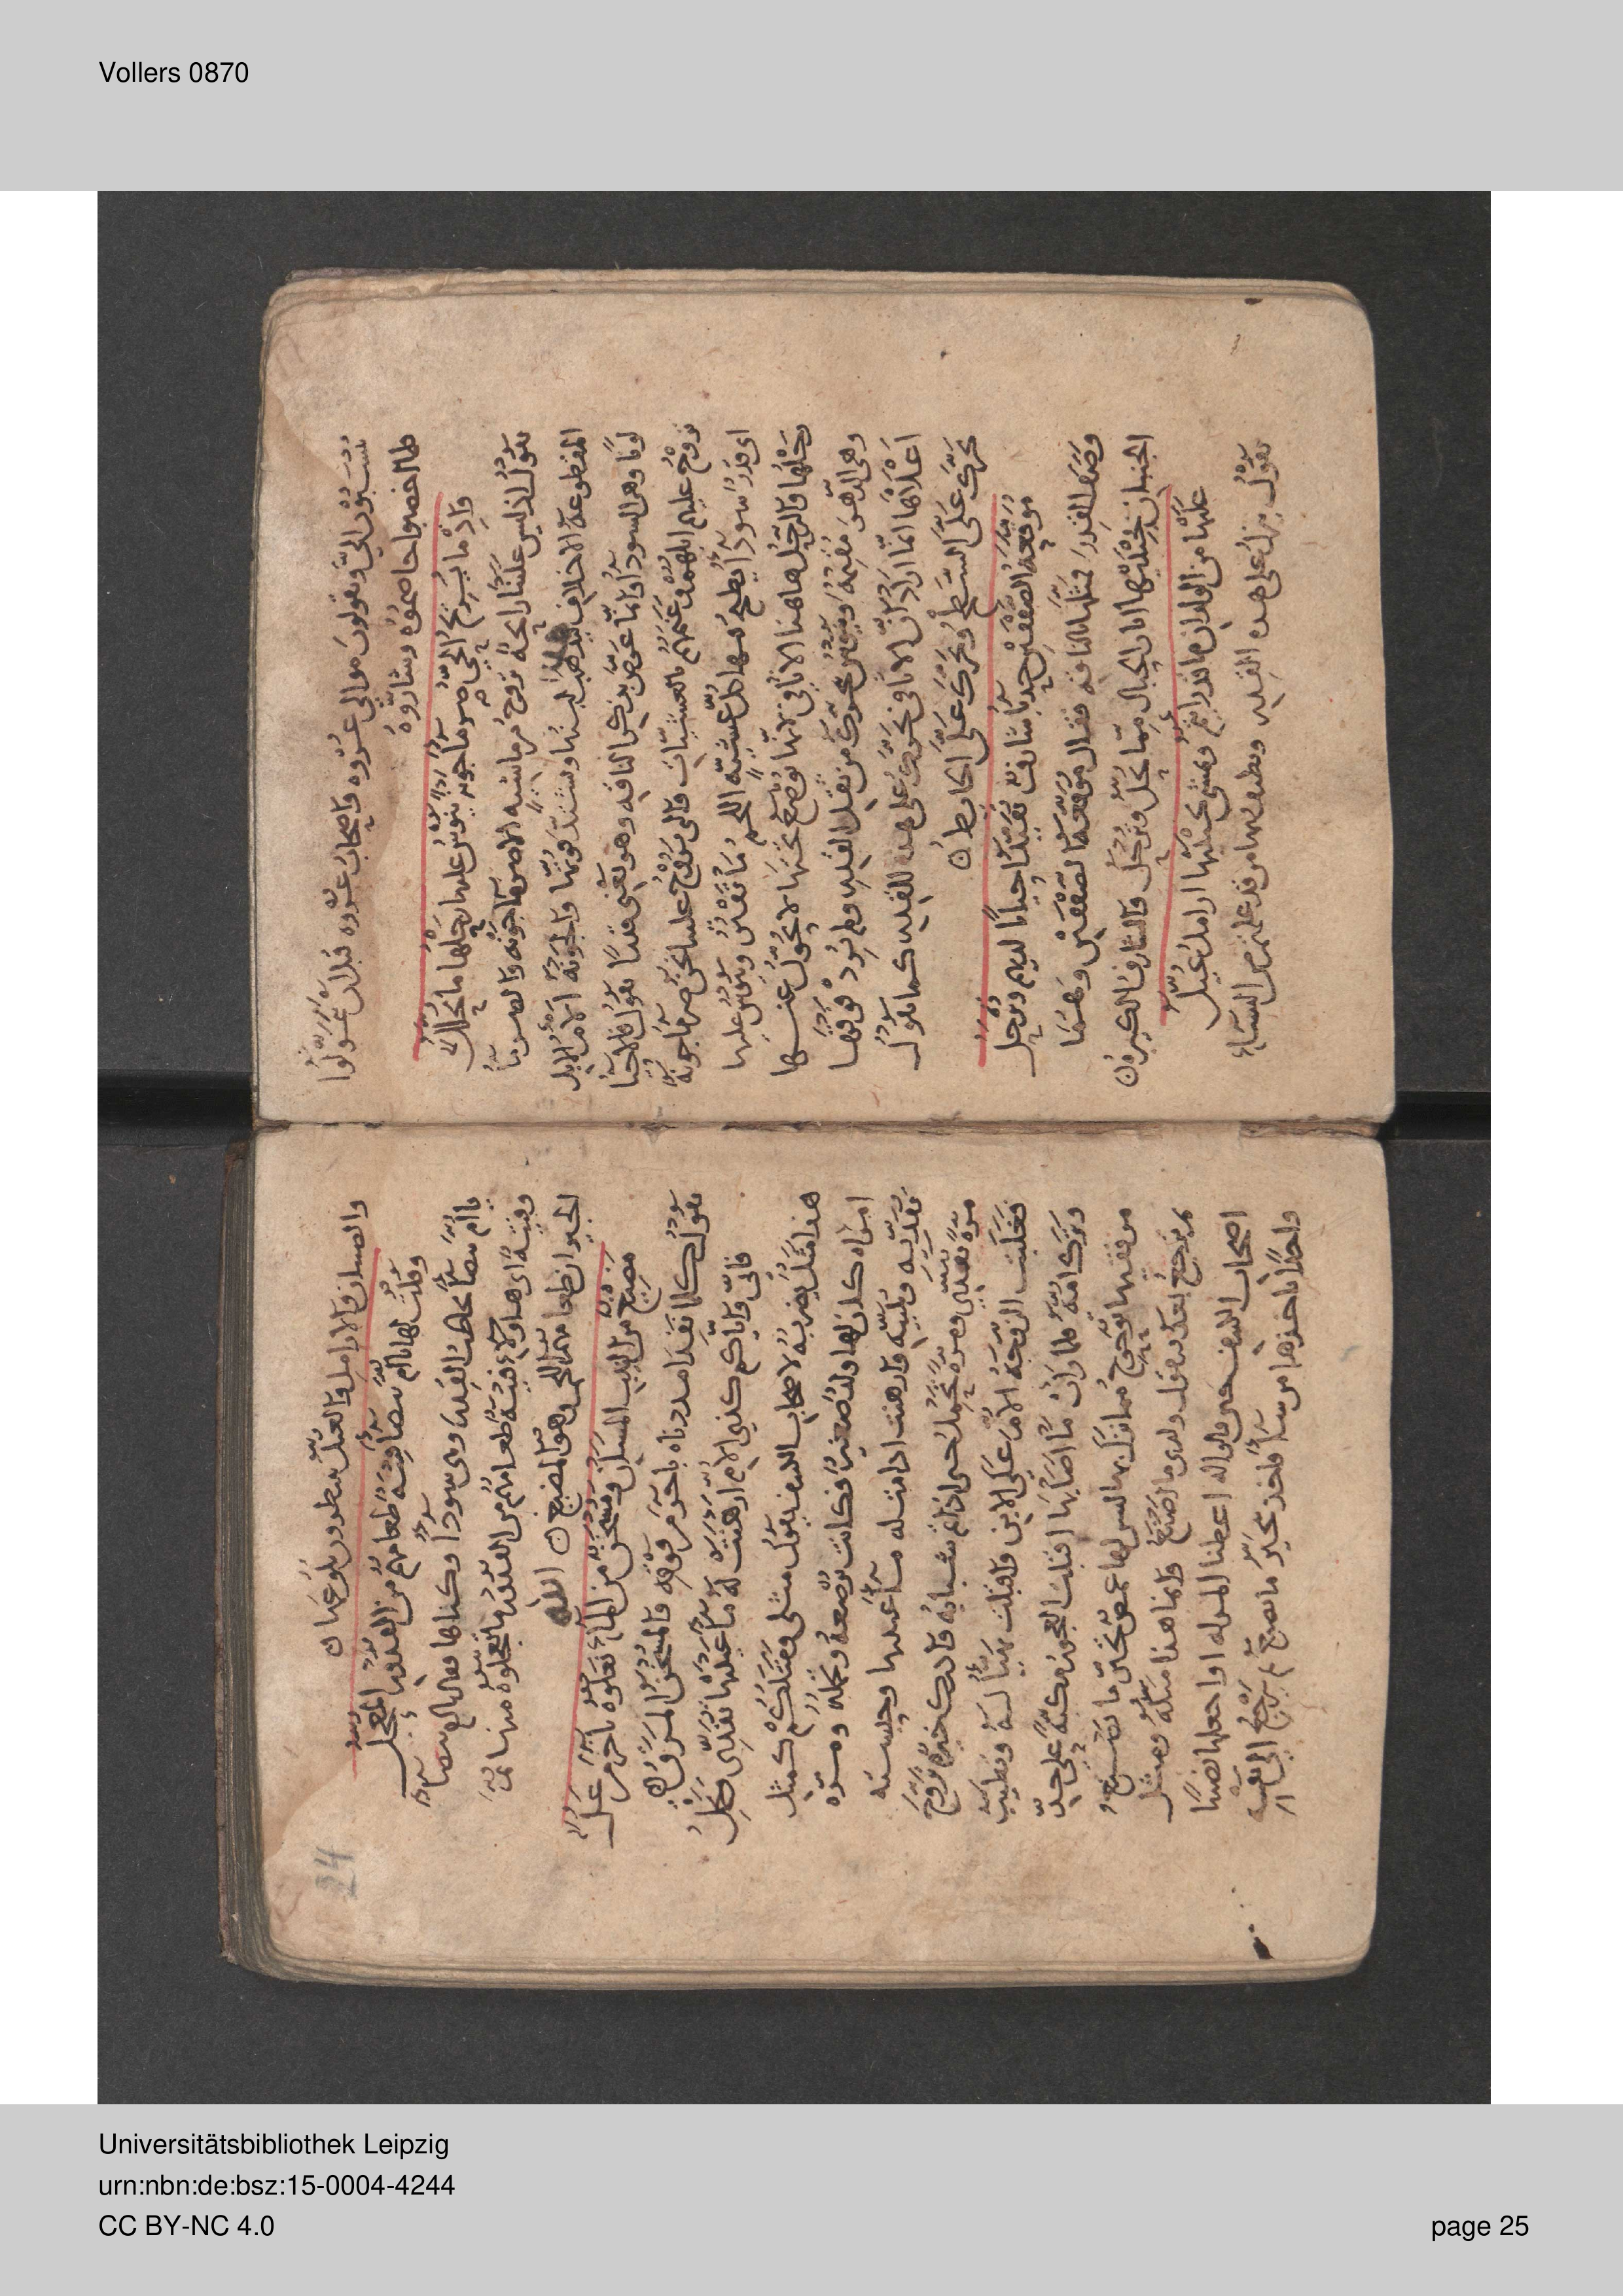 Vollers 0870
ىنسبون الي وتقولون موالي عروه واصحاب عروه قبل ان تمولوا
فلما اخصبوا خاصموه وشاروه
واذ ما يريح الحي صرما جونة ينوس عليها رحلها ما يحلل
يقول اذ ليس علينا رايحة تروح من ماشية الا صرما جونة والصرما
المقطوعة الاخلاف ليذهب لبنها وتشتد قوتها والجونة الادم من الابل
لونا وهى السودا وانما عرض بذكر الناقه وهو يعنى قدرا يقول فالاحيا
تروح عليهم ابلهم وغنمهم بالعشيات والى يروح علينا نحن صرما جونة
اى قدر سودا يطبخ فيها كل عشية اللحم ما وينوس عليها
رحلها والرحل هاهنا الاثافي لانها توضع تحتها لا تحول عنها
وهى الدهر مقيمة وينوس يتحرك من ثقل القدر ولم يرد فوقها
اعلاها انما اراد ان الاثافى تحرك على هذه القدر كما تقول
تحرك على السطح وتحرك على الحايط
موقعة الصفقين حدبا شارف تقيد احيانا لديهم وترحل
وصف القدر فمثلها بالناقه فقال موقعة الصفقين وهما
الجنبان اثار الحبال مما تحل وترحل والشارف الكبيرة
عليها من الولدان ما قد رايتم وتمشي بجنبيها ارامل عيل
يقول ينزل على هذه القدر ويطعم منها من قد علمتم من النساء
24
والصبيان والارامل والعيل ينظرون بلوغها
وقلت لها يا ام بيضا فتية طعامهم من القدور المعجل
يا ام بيضا يخاطب القدر وهى سودا وكناها فقال يا ام بيضا
وفتية اى هاولاء فتية طعامهم من القدور ما تعجلوه منها من
الجيران طعامهم اللحم وهو المضيح
مضيح من النيب المسان ومسخن من الماء نعلوه باخر من عل
يقول كلما نفدا مددناه باخر من فوقه والمسخن المرق
فانى واياكم كذي الام ارهنت له ماء عينيها تفدى وتحمل
هذا مثل يضربه لاصحاب الكنيف يقول مثلى ومثلكم كمثل
امراة كان لها ولد صغير فكانت ترضعه وتحمله ومرة
تفديه وتلبيه وارهنت ادامت له ماء عينيها وحبسته
مرة تفدى ومرة تحمل حتى اذا تم شبابه وادرك خيره تزوج
فغلبت الزوجة الام على الابن واقبلت تهيا له وتطيب
وترك امه فلما رات ما اصابها اقبلت العجوز مكبة على حد
مرفقيها توحوح مما نزل بها ليس لها غمض تحزن ما تستريح
ثم ترجع بعد تقول ولدى ما اصنع وانما هذا مثله ومثل
اصحاب الكنيف حين قالوا له اعطنا المراة او اجعلها نصيبا
واحدا ياخذها من شا فاخذ يخير ما يصنع ثم يرجع الى نفسه
Universitätsbibliothek Leipzig
urn:nbn:de:bsz:15-0004-4244
CC BY-NC 4.0
page 25